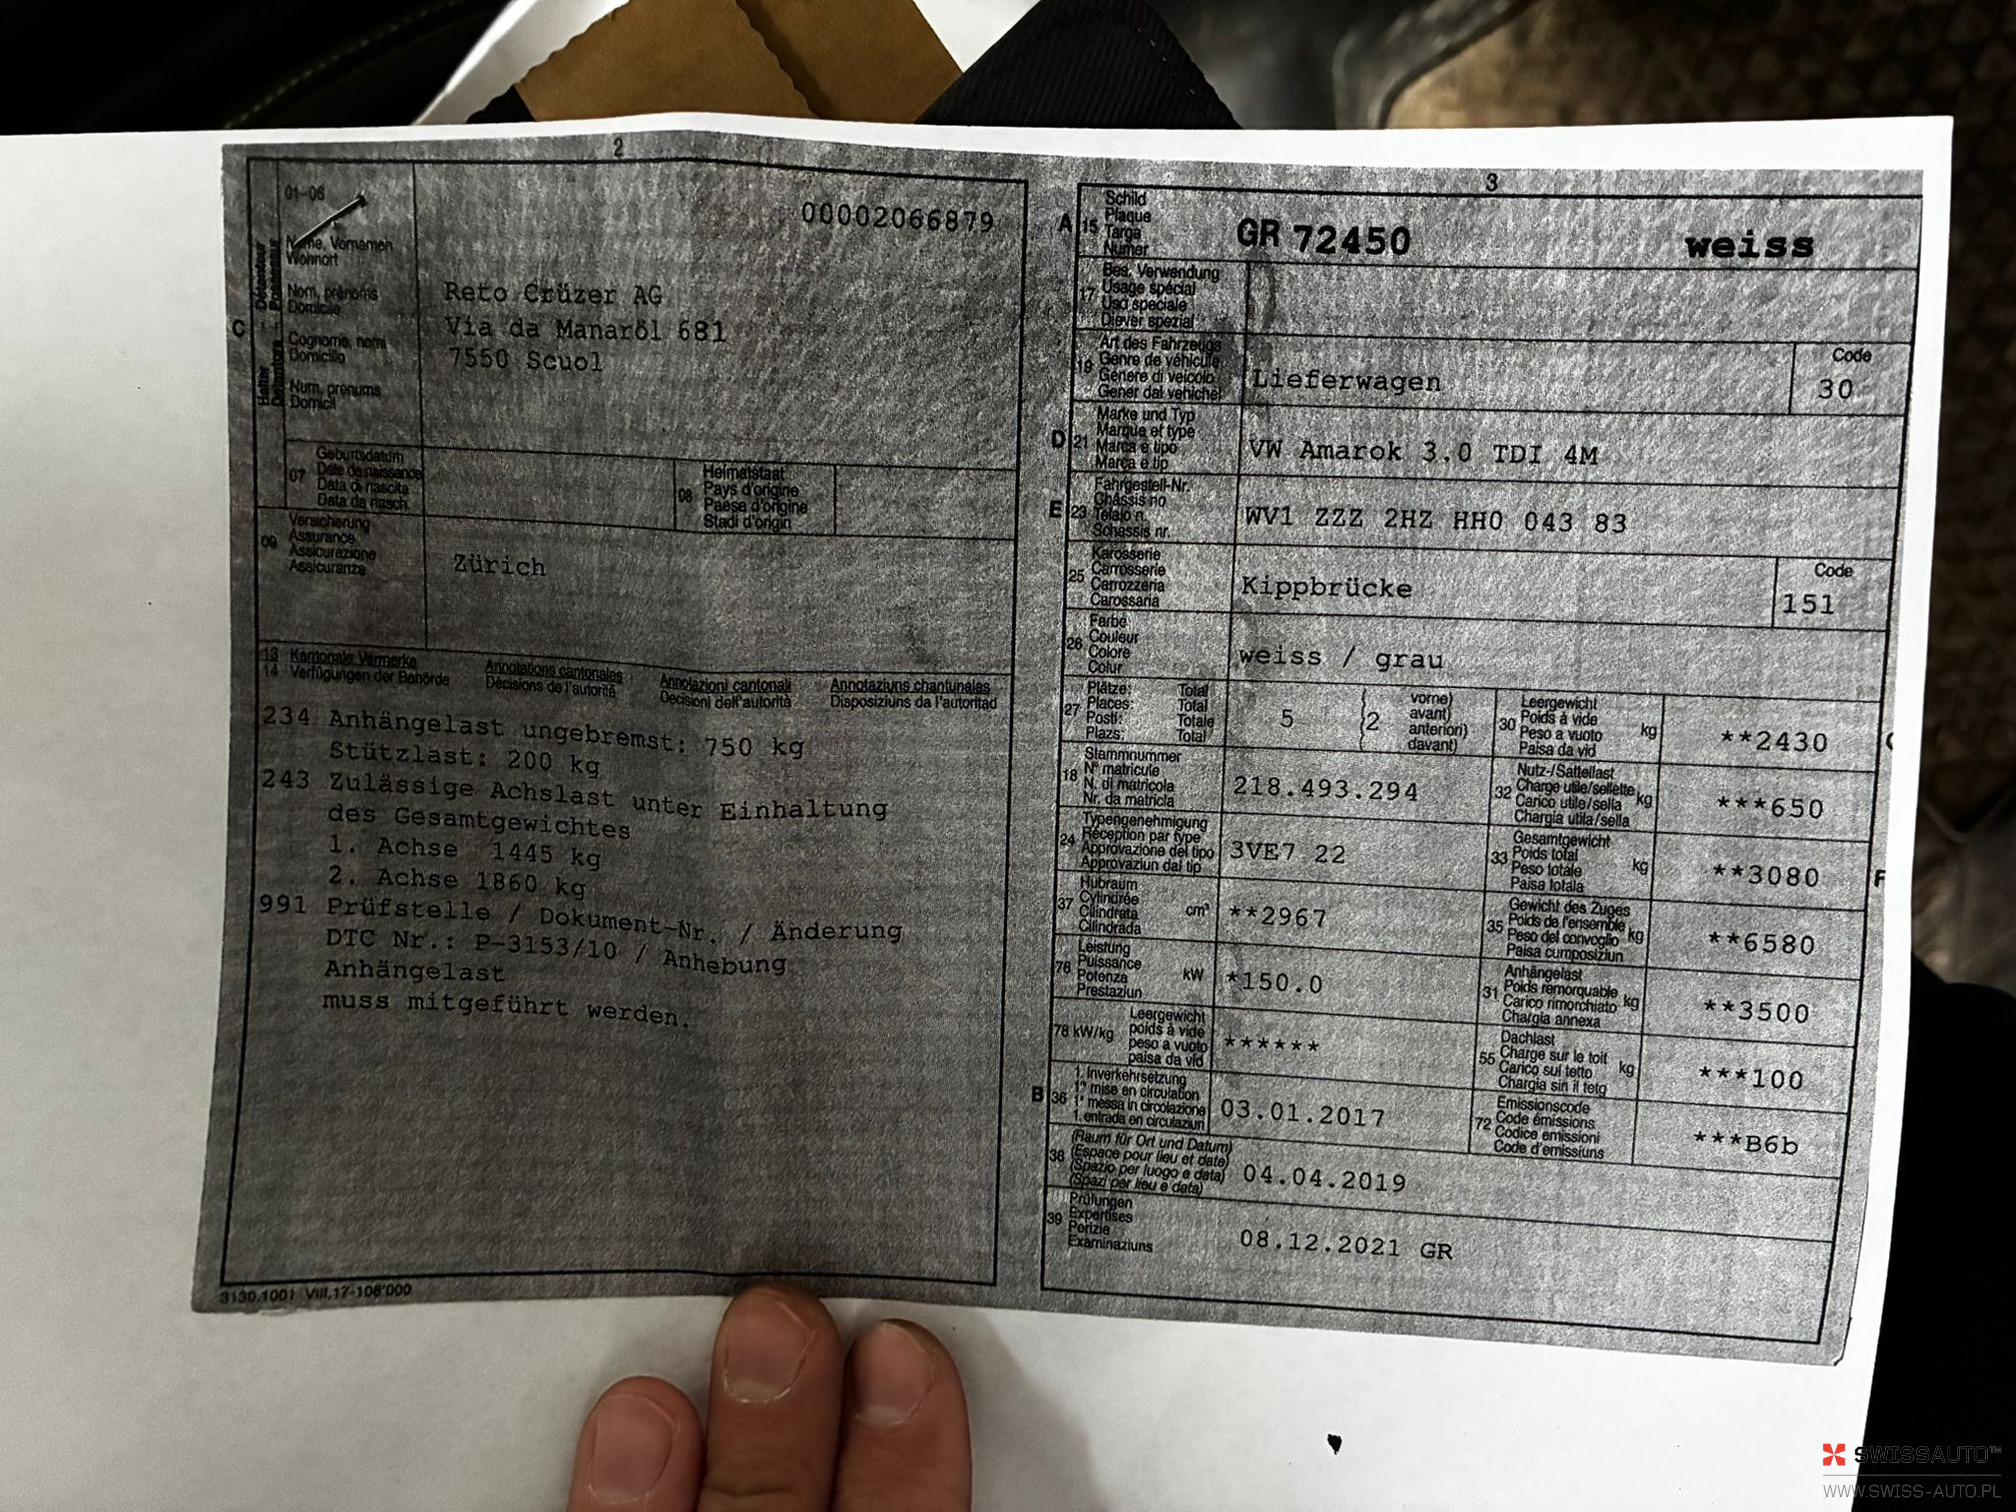 2
01–06
00002066879
Name, Vornamen
Wohnort
Nom, prénoms
Domicile
Cognome, nomi
Domicilio
Num, prenums
Domicil
C
Reto Crüzer AG
Via da Manaröl 681
7550 Scuol
07
Geburtsdatum
Date de naissance
Data di nascita
Data da nasch.
08
Heimatstaat
Pays d'origine
Paese d'origine
Stadi d'origin
09
Versicherung
Assurance
Assicurazione
Assicuranza
Zürich
13 Kantonale Vermerke Annotations cantonales Annotazioni cantonali Annotaziuns chantunales
14 Verfügungen der Behörde Décisions de l'autorité Decisioni dell'autorità Disposiziuns da l'autoritad
234 Anhängelast ungebremst: 750 kg
Stützlast: 200 kg
243 Zulässige Achslast unter Einhaltung
des Gesamtgewichtes
1. Achse 1445 kg
2. Achse 1860 kg
991 Prüfstelle / Dokument-Nr. / Änderung
DTC Nr.: P-3153/10 / Anhebung
Anhängelast
muss mitgeführt werden.
3130.1001 VIII.17-106'000
3
A 15
Schild
Plaque
Targa
Numer
GR 72450 weiss
17
Bes. Verwendung
Usage spécial
Uso speciale
Diever spezial
19
Art des Fahrzeugs
Genre de véhicule
Genere di veicolo
Gener dal vehichel
Lieferwagen
Code
30
D 21
Marke und Typ
Marque et type
Marca e tipo
Marca e tip
VW Amarok 3.0 TDI 4M
E 23
Fahrgestell-Nr.
Châssis no
Telaio n.
Schassis nr.
WV1 ZZZ 2HZ HH0 043 83
25
Karosserie
Carrosserie
Carrozzeria
Carossaria
Kippbrücke
Code
151
26
Farbe
Couleur
Colore
Colur
weiss / grau
27
Plätze: Total
Places: Total
Posti: Totale
Plazs: Total
5 (2
vorne)
avant)
anteriori)
davant)
30
Leergewicht
Poids à vide kg
Peso a vuoto
Paisa da vid
**2430
18
Stammnummer
N° matricule
N. di matricola
Nr. da matricla
218.493.294
32
Nutz-/Sattellast
Charge utile/sellette kg
Carico utile/sella
Chargia utila/sella
***650
24
Typengenehmigung
Réception par type
Approvazione del tipo
Approvaziun dal tip
3VE7 22
33
Gesamtgewicht
Poids total kg
Peso totale
Paisa totala
**3080
F
37
Hubraum
Cylindrée cm³
Cilindrata
Cilindrada
**2967
35
Gewicht des Zuges
Poids de l'ensemble kg
Peso del convoglio
Paisa cumposiziun
**6580
76
Leistung
Puissance kW
Potenza
Prestaziun
*150.0
31
Anhängelast
Poids remorquable kg
Carico rimorchiato
Chargia annexa
**3500
78 kW/kg
Leergewicht
poids à vide
peso a vuoto
paisa da vid
******
55
Dachlast
Charge sur le toit kg
Carico sul tetto
Chargia sin il tetg
***100
B 36
1. Inverkehrsetzung
1re mise en circulation
1a messa in circolazione
1. entrada en circulaziun
03.01.2017
72
Emissionscode
Code émissions
Codice emissioni
Code d'emissiuns
***B6b
38
(Raum für Ort und Datum)
(Espace pour lieu et date)
(Spazio per luogo e data)
(Spazi per lieu e data)
04.04.2019
39
Prüfungen
Expertises
Perizie
Examinaziuns
08.12.2021 GR
SWISSAUTO™
WWW.SWISS-AUTO.PL